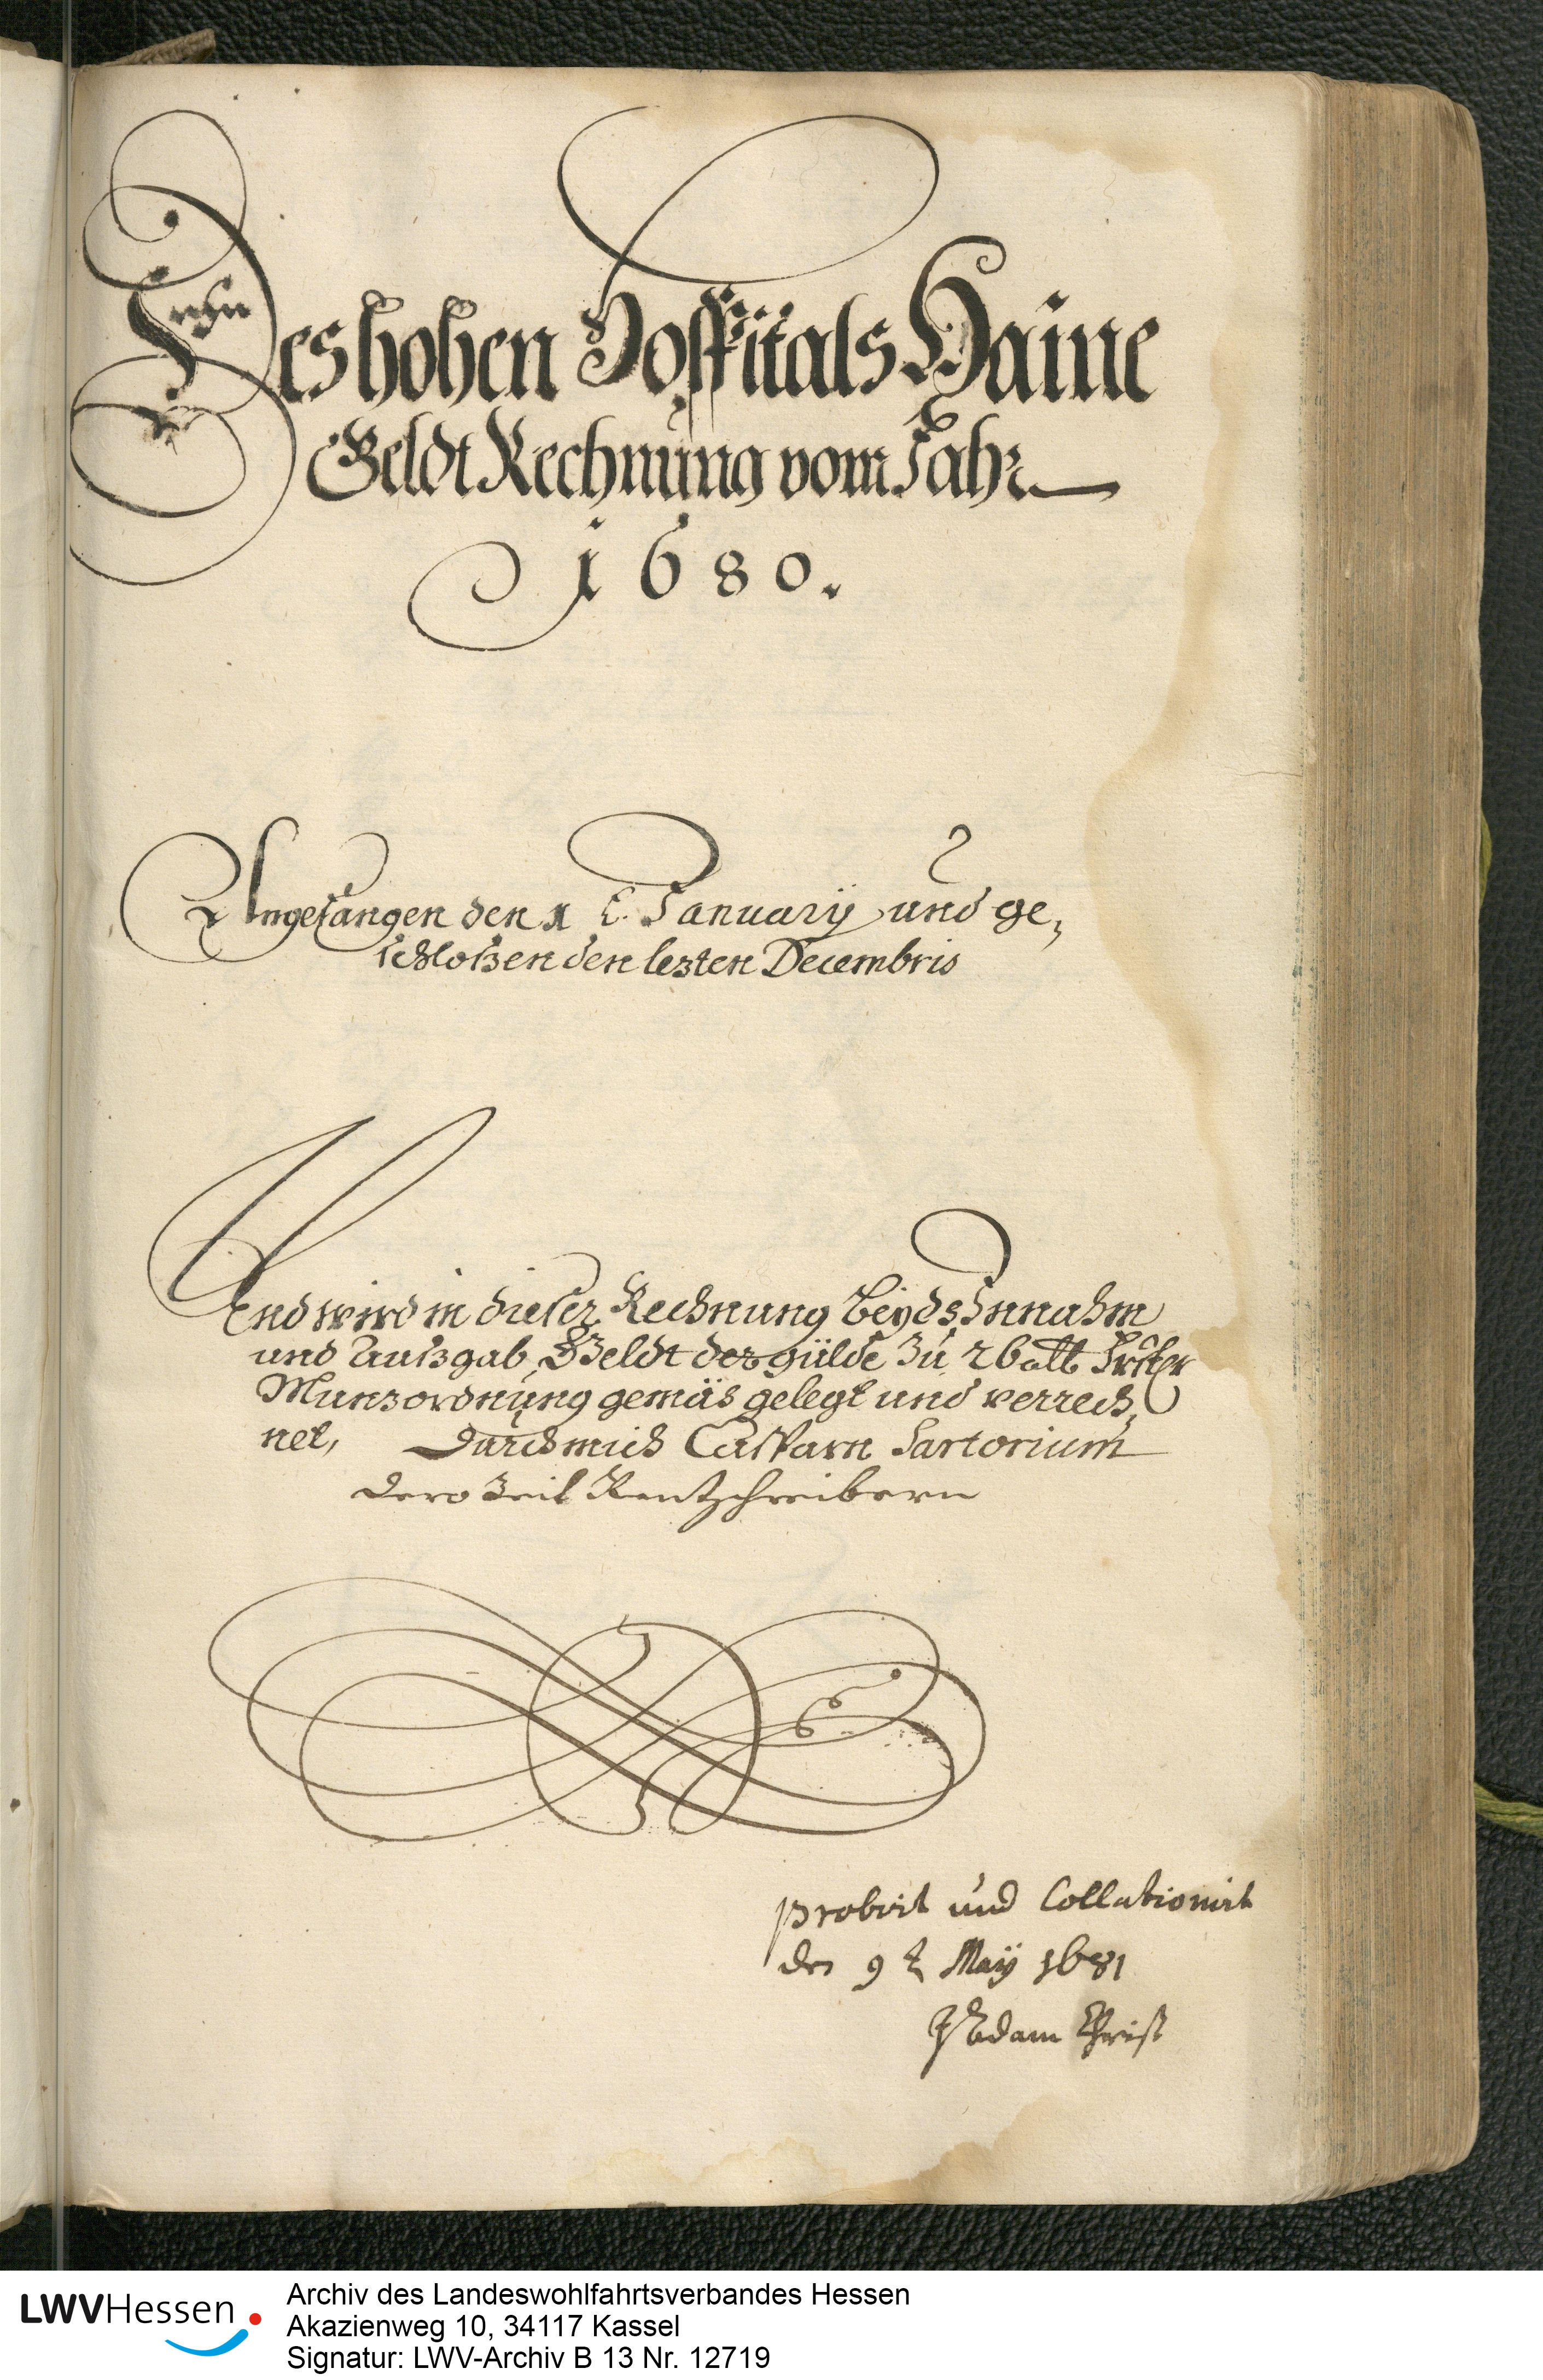 Des hohen Hospitals Haine
Geldt Rechnung vom Jahr
1680.
Angefangen den 1 t. January und ge,
schloßen den lezten Decembris
Und wird in dieser Rechnung beyds Innahm
und Außgab, Geldt der gülde zu 26 alb
Munzordnung gemäs gelegt und verrech,
net, Durch mich Casparn Sartorium
dero Zeit Rentschreibern
probirt und Collationirt
den 9 t May 1681
JAdam Christ
LWVHessen
Archiv des Landeswohlfahrtsverbandes Hessen
Akazienweg 10, 34117 Kassel
Signatur: LWV-Archiv B 13 Nr. 12719